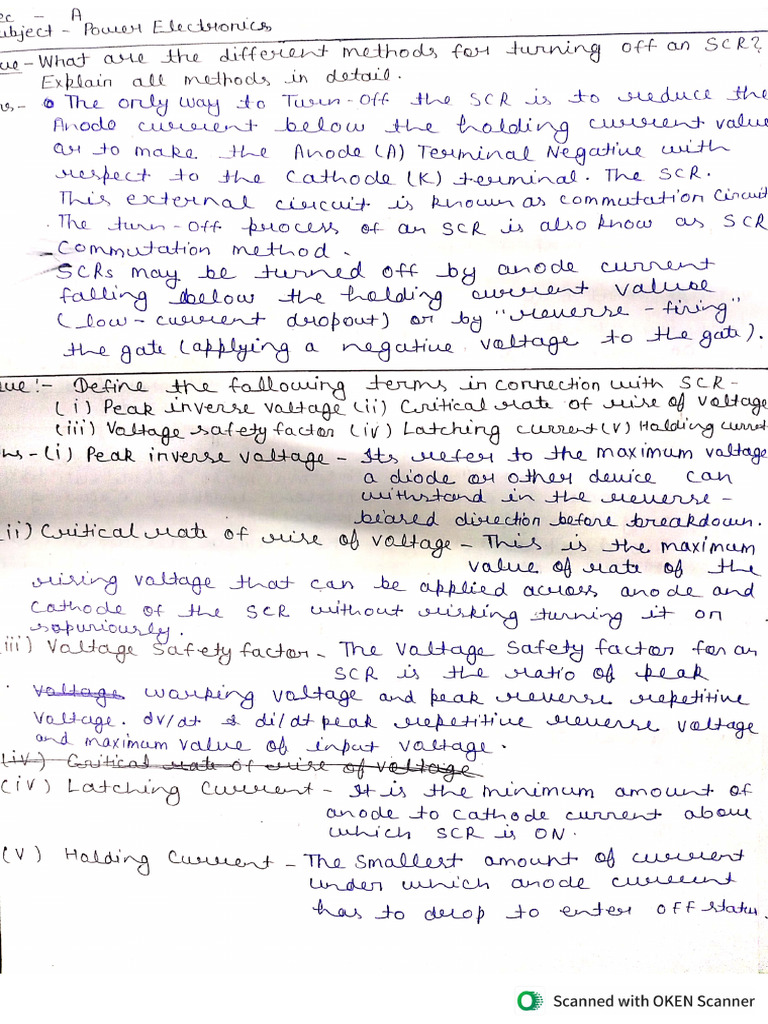 ec - A
ubject - Power Electronics
ue - What are the different methods for turning off an SCR?
Explain all methods in detail.
ns. - The only way to Turn-Off the SCR is to reduce the
Anode current below the holding current value
or to make the Anode (A) Terminal Negative with
respect to the Cathode (K) terminal. The SCR.
This external circuit is known as commutation circuit
. The turn-off process of an SCR is also know as SCR
Commutation method.
SCRs may be turned off by anode current
falling below the holding current value
(low-current dropout) or by "reverse-firing"
the gate (applying a negative voltage to the gate).
ue :- Define the following terms in connection with SCR -
(i) Peak inverse voltage (ii) Critical rate of rise of voltage
(iii) Voltage safety factor (iv) Latching current (v) Holding current
ns - (i) Peak inverse voltage - Its refer to the maximum voltage
a diode or other device can
withstand in the reverse -
biared direction before breakdown.
(ii) Critical rate of rise of voltage - This is the maximum
value of rate of the
rising voltage that can be applied across anode and
cathode of the SCR without risking turning it on
sopuriously.
iii) Voltage Safety factor - The Voltage Safety factor for an
SCR is the ratio of peak
voltage working voltage and peak reverse repetitive
voltage. dv/dt & di/dt peak repetitive reverse voltage
and maximum value of input voltage.
(iv) Critical rate of rise of voltage
(iv) Latching Current - It is the minimum amount of
anode to cathode current above
which SCR is ON.
(V) Holding Current - The Smallest amount of current
under which anode current
has to drop to enter OFF status.
Scanned with OKEN Scanner